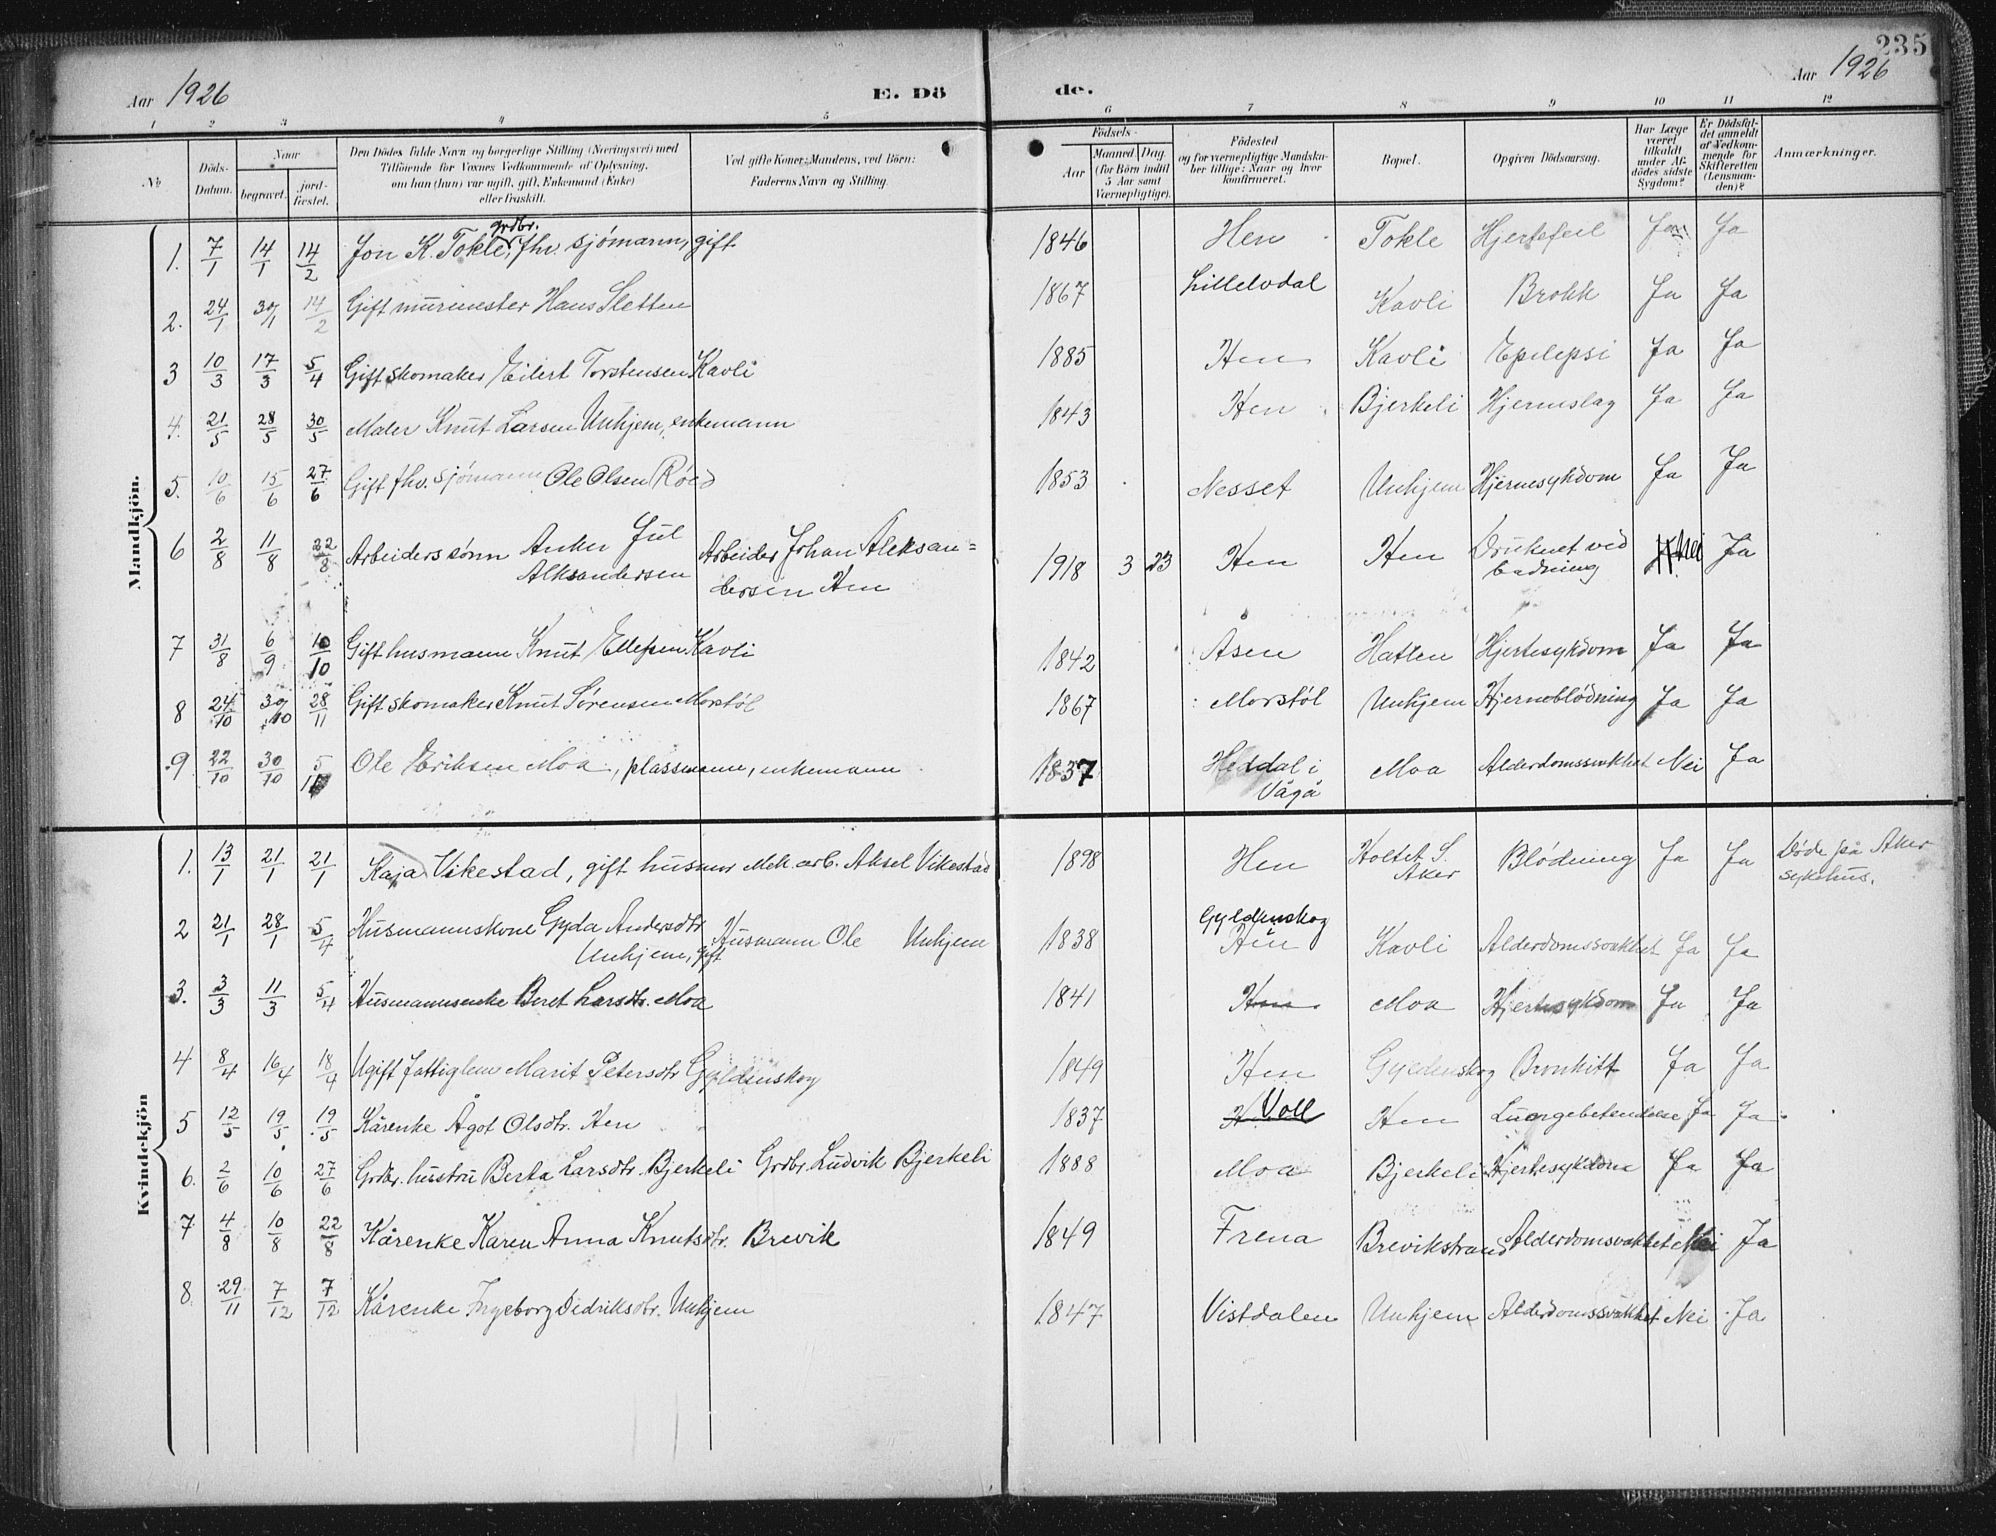 235
Aar 1926 E. Dö de. Aar 1926
1 2 3 4 5 6 7 8 9 10 11 12
№ Döds-Datum. Naar begravet. jord-fæstet. Den Dödes fulde Navn og borgerlige Stilling (Næringsvei) med Tilföiende for Voxnes Vedkommende af Oplysning, om han (hun) var ugift, gift, Enkemand (Enke) eller fraskilt. Ved gifte Koner: Mandens, ved Börn: Faderens Navn og Stilling. Födsels- Aar Maaned Dag. (for Börn indtil 5 Aar samt Værnepligtige). Födested og for værnepligtige Mandskaber tillige: Naar og hvor konfirmeret. Bopæl. Opgiven Dödsaarsag. Har Læge været tilkaldt under Afdödes sidste Sygdom? Er Dödsfaldet anmeldt af Vedkommende for Skifteretten (Lensmanden)? Anmærkninger.
Mandkjön.
1. 7/1 14/1 14/2 Jon K. Tokle, grdbr. fhv. sjómann, gift 1846 Hen Tokle Hjertefeil Ja Ja
2. 24/1 30/1 14/2 Gift murmester Hans Sletten 1867 Lillelvdal Kavli Brokk Ja Ja
3 10/3 17/3 5/4 Gift skomaker Eilert Torstensen Kavli 1885 Hen Kavli Epilepsi Ja Ja
4. 21/5 28/5 30/5 Maler Knut Larsen Unhjem, enkemann 1843 Hen Bjerkeli Hjerneslag Ja Ja
5. 10/6 15/6 27/6 Gift fhv. sjómann Ole Olsen Róed 1853 Nesset Unhjem Hjernesykdom Ja Ja
6 2/8 11/8 22/8 Arbeiderssónn Anker Jul Alksandersen Arbeider Johan Aleksan=dersen Hen 1918 3 23 Hen Hen Druknet ved badning Nei Ja
7 31/8 6/9 10/10 Gift husmann Knut Ellefsen Kavli 1842 Åsen Hatlen Hjertesykdom Ja Ja
8 24/10 30/10 28/11 Gift skomaker Knut Sórensen Morstól 1867 Morstól Unhjem Hjerneblódning Ja Ja
9 22/10 30/10 5/11 Ole Eriksen Moa, plassmann, enkemann 1837 Heddal i Vågå Moa Alderdomssvakhet Nei Ja
Kvindekjön
1. 13/1 21/1 21/1 Kaja Vikestad, gift husmor Mek. arb. Aksel Vikestad 1898 Hen Holtet S. Aker Blódning Ja Ja Dóde på Aker sykehus.
2 21/1 28/1 5/4 Husmannskone Gyda Andersdtr Unhjem, gift Husmann Ole Unhjem 1838 Gyldenskog Hen Kavli Alderdomssvakhet Ja Ja
3. 3/3 11/3 5/4 Husmannsenke Beret Larsdtr. Moa 1841 Hen Moa Hjertesykdom Ja Ja
4 8/4 16/4 18/4 Ugift fattiglem Marit Petersdtr Gyldenskog 1849 Hen Gyldenskog Bronkitt Ja Ja
5 12/5 19/5 19/5 Kårenke Ågot Olsdtr. Hen 1837 H Voll Hen Lungebetendelse Ja Ja
6. 2/6 10/6 27/6 Grdbr. hustru Berta Larsdtr. Bjerkeli Grdbr. Ludvik Bjerkeli 1888 Moa Bjerkeli Hjertesykdom Ja Ja
7 4/8 10/8 22/8 Kårenke Karen Anna Knutsdtr. Brevik 1849 Frena Brevikstrand Alderdomsvakhet Nei Ja
8. 29/11 7/12 7/12 Kårenke Ingeborg Didriksdtr. Unhjem 1847 Vistdalen Unhjem Alderdomssvakhet Nei Ja